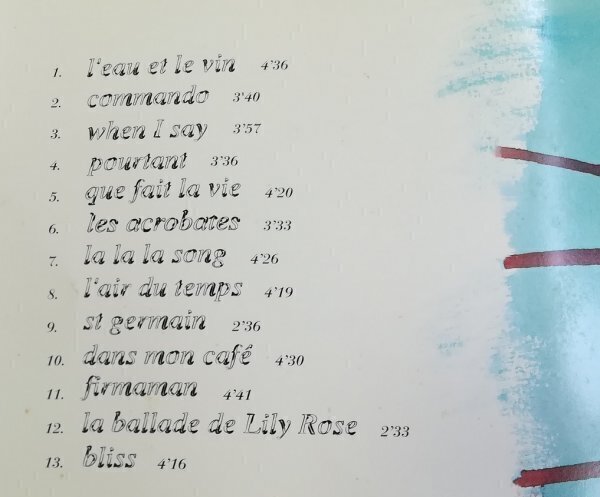 1. l'eau et le vin 4'36
2. commando 3'40
3. when I say 3'57
4. pourtant 3'36
5. que fait la vie 4'20
6. les acrobates 3'33
7. la la la song 4'26
8. l'air du temps 4'19
9. st germain 2'36
10. dans mon café 4'30
11. firmaman 4'41
12. la ballade de Lily Rose 2'33
13. bliss 4'16